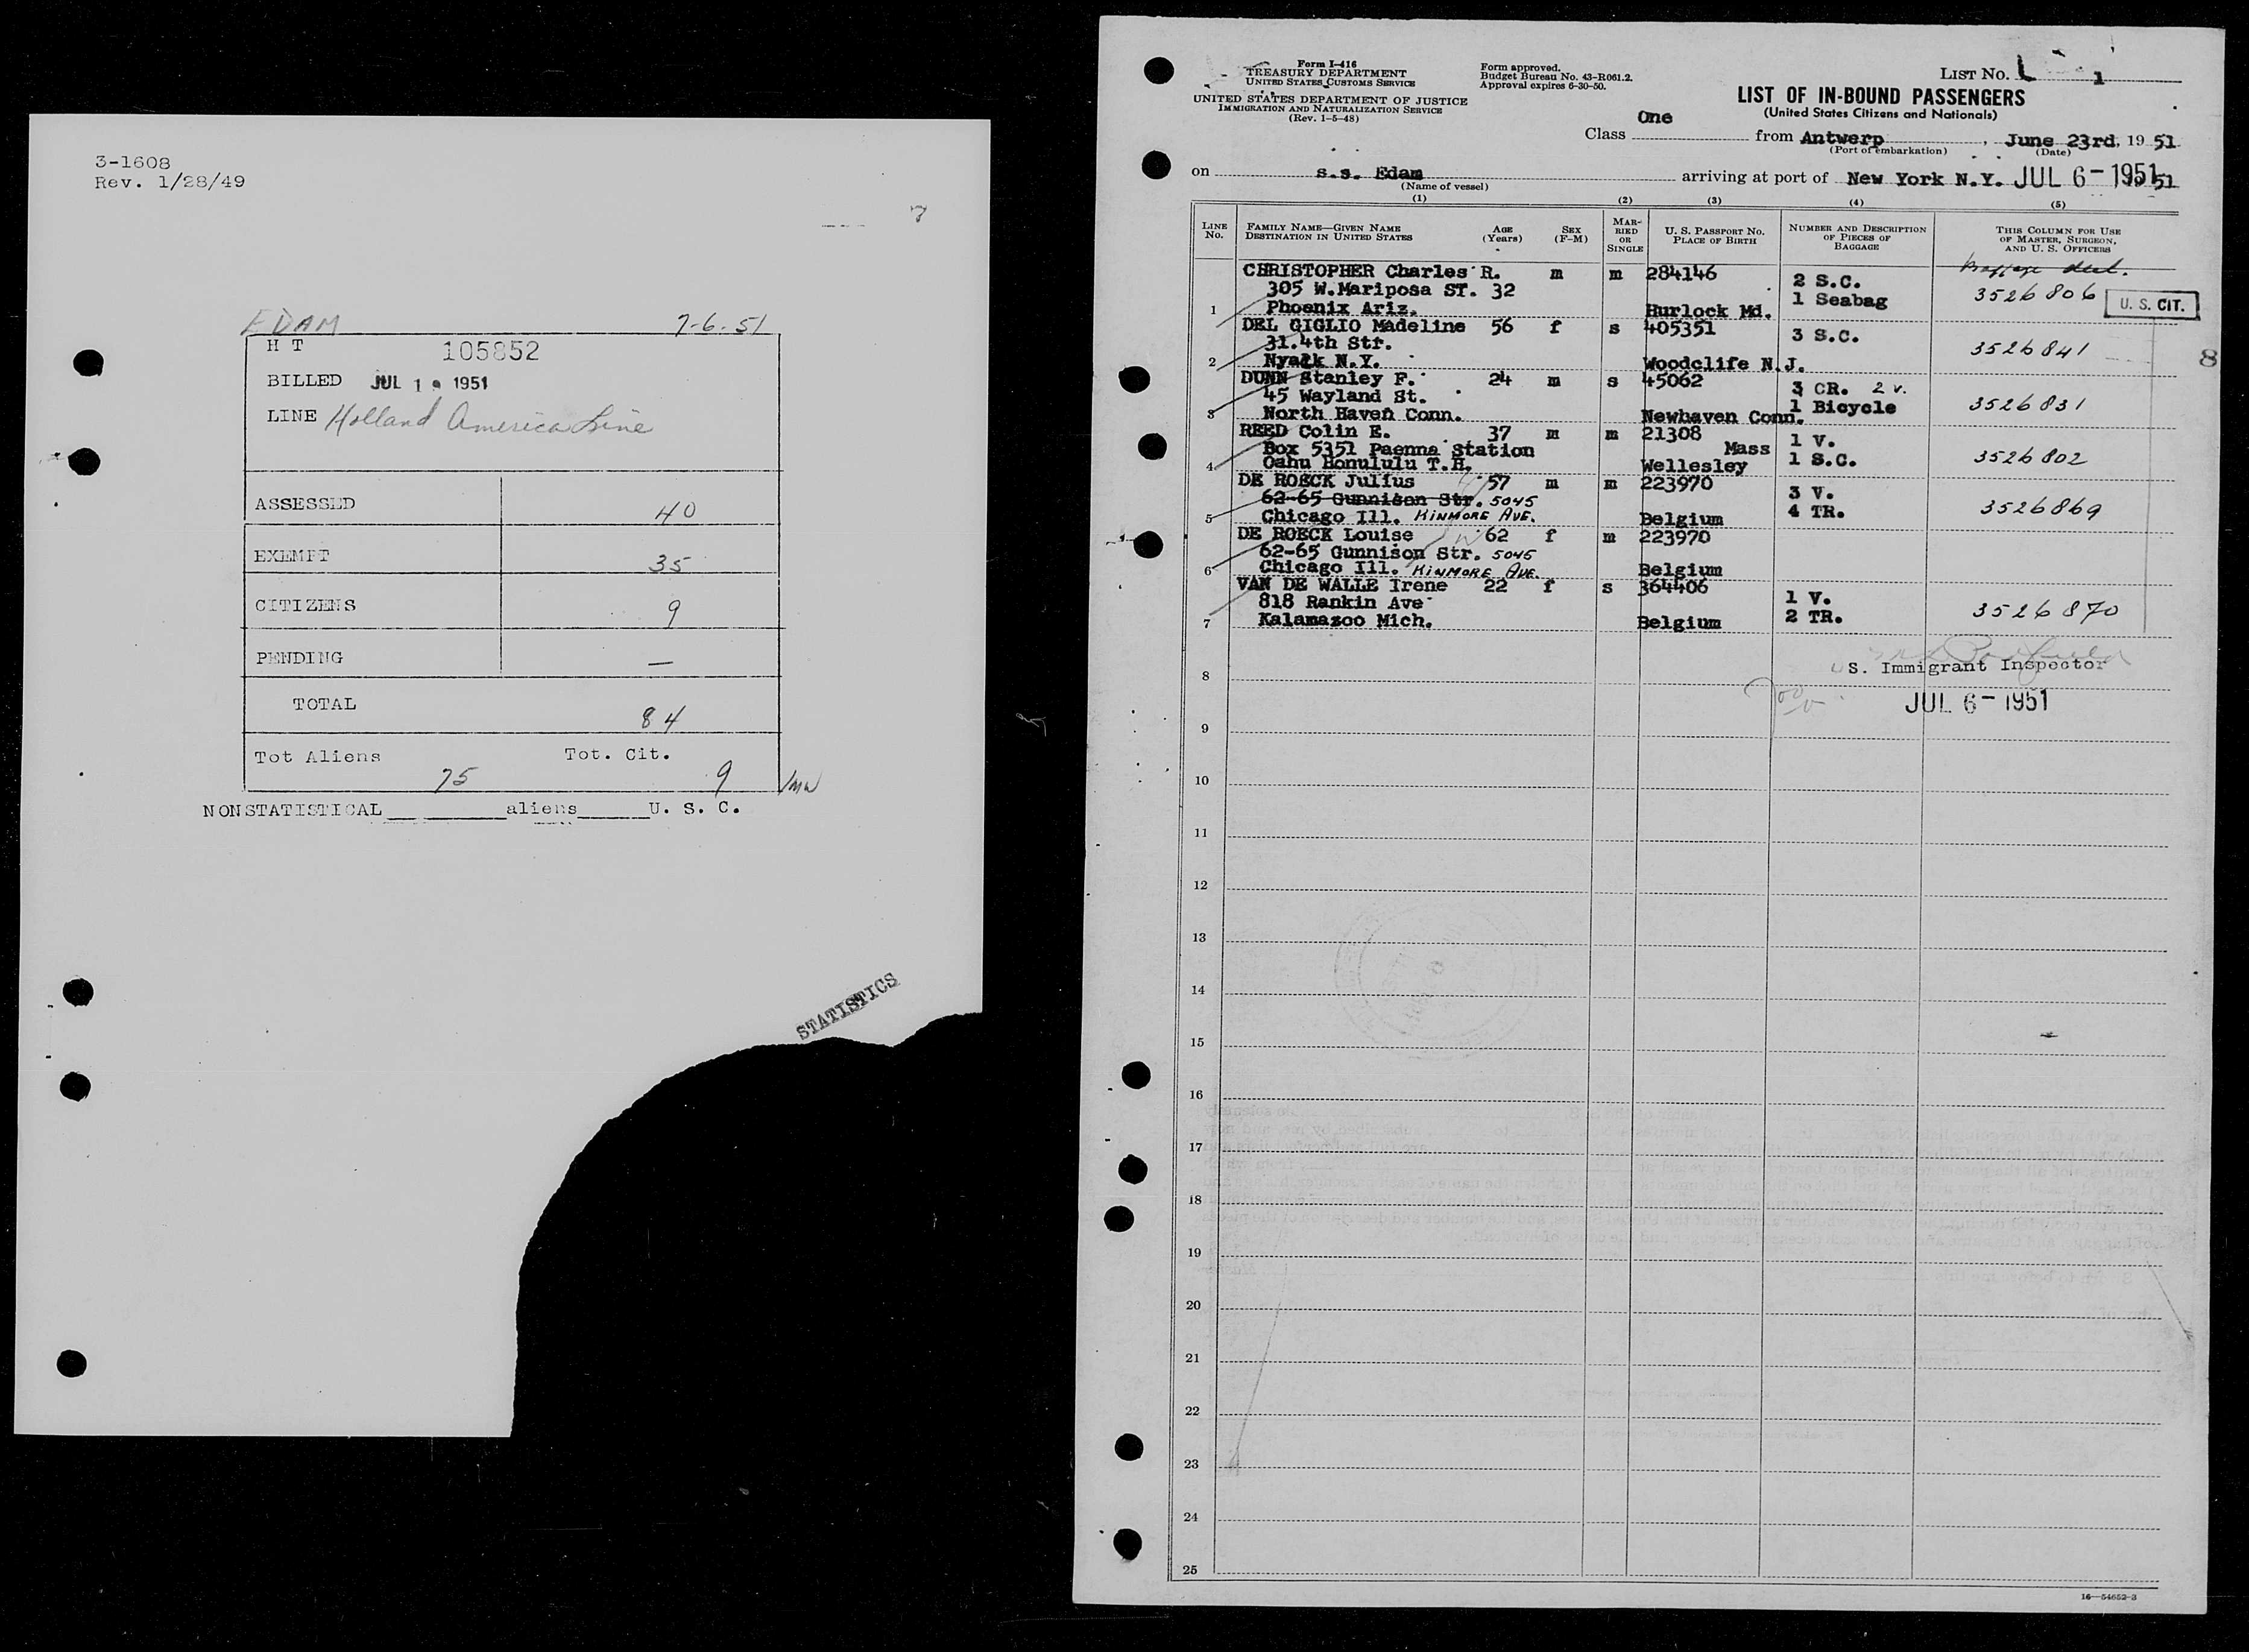 3-1608
Rev. 1/28/49
EDAM 7-6-51
H T 105852
BILLED JUL 19 1951
LINE Holland America Line
ASSESSED 40
EXEMPT 35
CITIZENS 9
PENDING —
TOTAL 84
Tot Aliens 75 Tot. Cit. 9 /MW
NONSTATISTICAL ________ aliens _____ U. S. C.
STATISTICS
Form I-416
TREASURY DEPARTMENT
UNITED STATES CUSTOMS SERVICE
UNITED STATES DEPARTMENT OF JUSTICE
IMMIGRATION AND NATURALIZATION SERVICE
(Rev. 1-5-48)
Form approved.
Budget Bureau No. 43-R061.2.
Approval expires 6-30-50.
LIST NO. 1
LIST OF IN-BOUND PASSENGERS
(United States Citizens and Nationals)
Class One from Antwerp, June 23rd, 19 51
(Port of embarkation) (Date)
on s.s. Edam arriving at port of New York N.Y. JUL 6-1951 51
(Name of vessel)
(1) (2) (3) (4) (5)
LINE NO. FAMILY NAME—GIVEN NAME DESTINATION IN UNITED STATES AGE (Years) SEX (F-M) MARRIED OR SINGLE U. S. PASSPORT NO. PLACE OF BIRTH NUMBER AND DESCRIPTION OF PIECES OF BAGGAGE THIS COLUMN FOR USE OF MASTER, SURGEON, AND U. S. OFFICERS
CHRISTOPHER Charles R. m m 284146 2 S.C. Baggage decl.
305 W.Mariposa ST. 32 1 Seabag 3526806 U. S. CIT.
1 Phoenix Ariz. Hurlock Md.
DEL GIGLIO Madeline 56 f s 405351 3 S.C.
31.4th Str. 3526841 8
2 Nyack N.Y. Woodclife N.J.
DUNN Stanley F. 24 m s 45062 3 CR. 2 v.
45 Wayland St. 1 Bicycle 3526831
3 North Haven Conn. Newhaven Conn.
REED Colin E. 37 m m 21308 1 V.
Box 5351 Paenna Station Mass 1 S.C. 3526802
4 Oahu Honululu T.H. Wellesley
DE ROECK Julius 57 m m 223970 3 V.
62-65 Gunnison Str. 5045 4 TR. 3526869
5 Chicago Ill. KINMORE AVE. Belgium
DE ROECK Louise 62 f m 223970
62-65 Gunnison Str. 5045
6 Chicago Ill. KINMORE AVE. Belgium
VAN DE WALLE Irene 22 f s 364406 1 V.
818 Rankin Ave 2 TR. 3526870
7 Kalamazoo Mich. Belgium
U.S. Immigrant Inspector
8
JUL 6-1951
9
10
11
12
13
14
15
16
17
18
19
20
21
22
23
24
25
16—54652-3